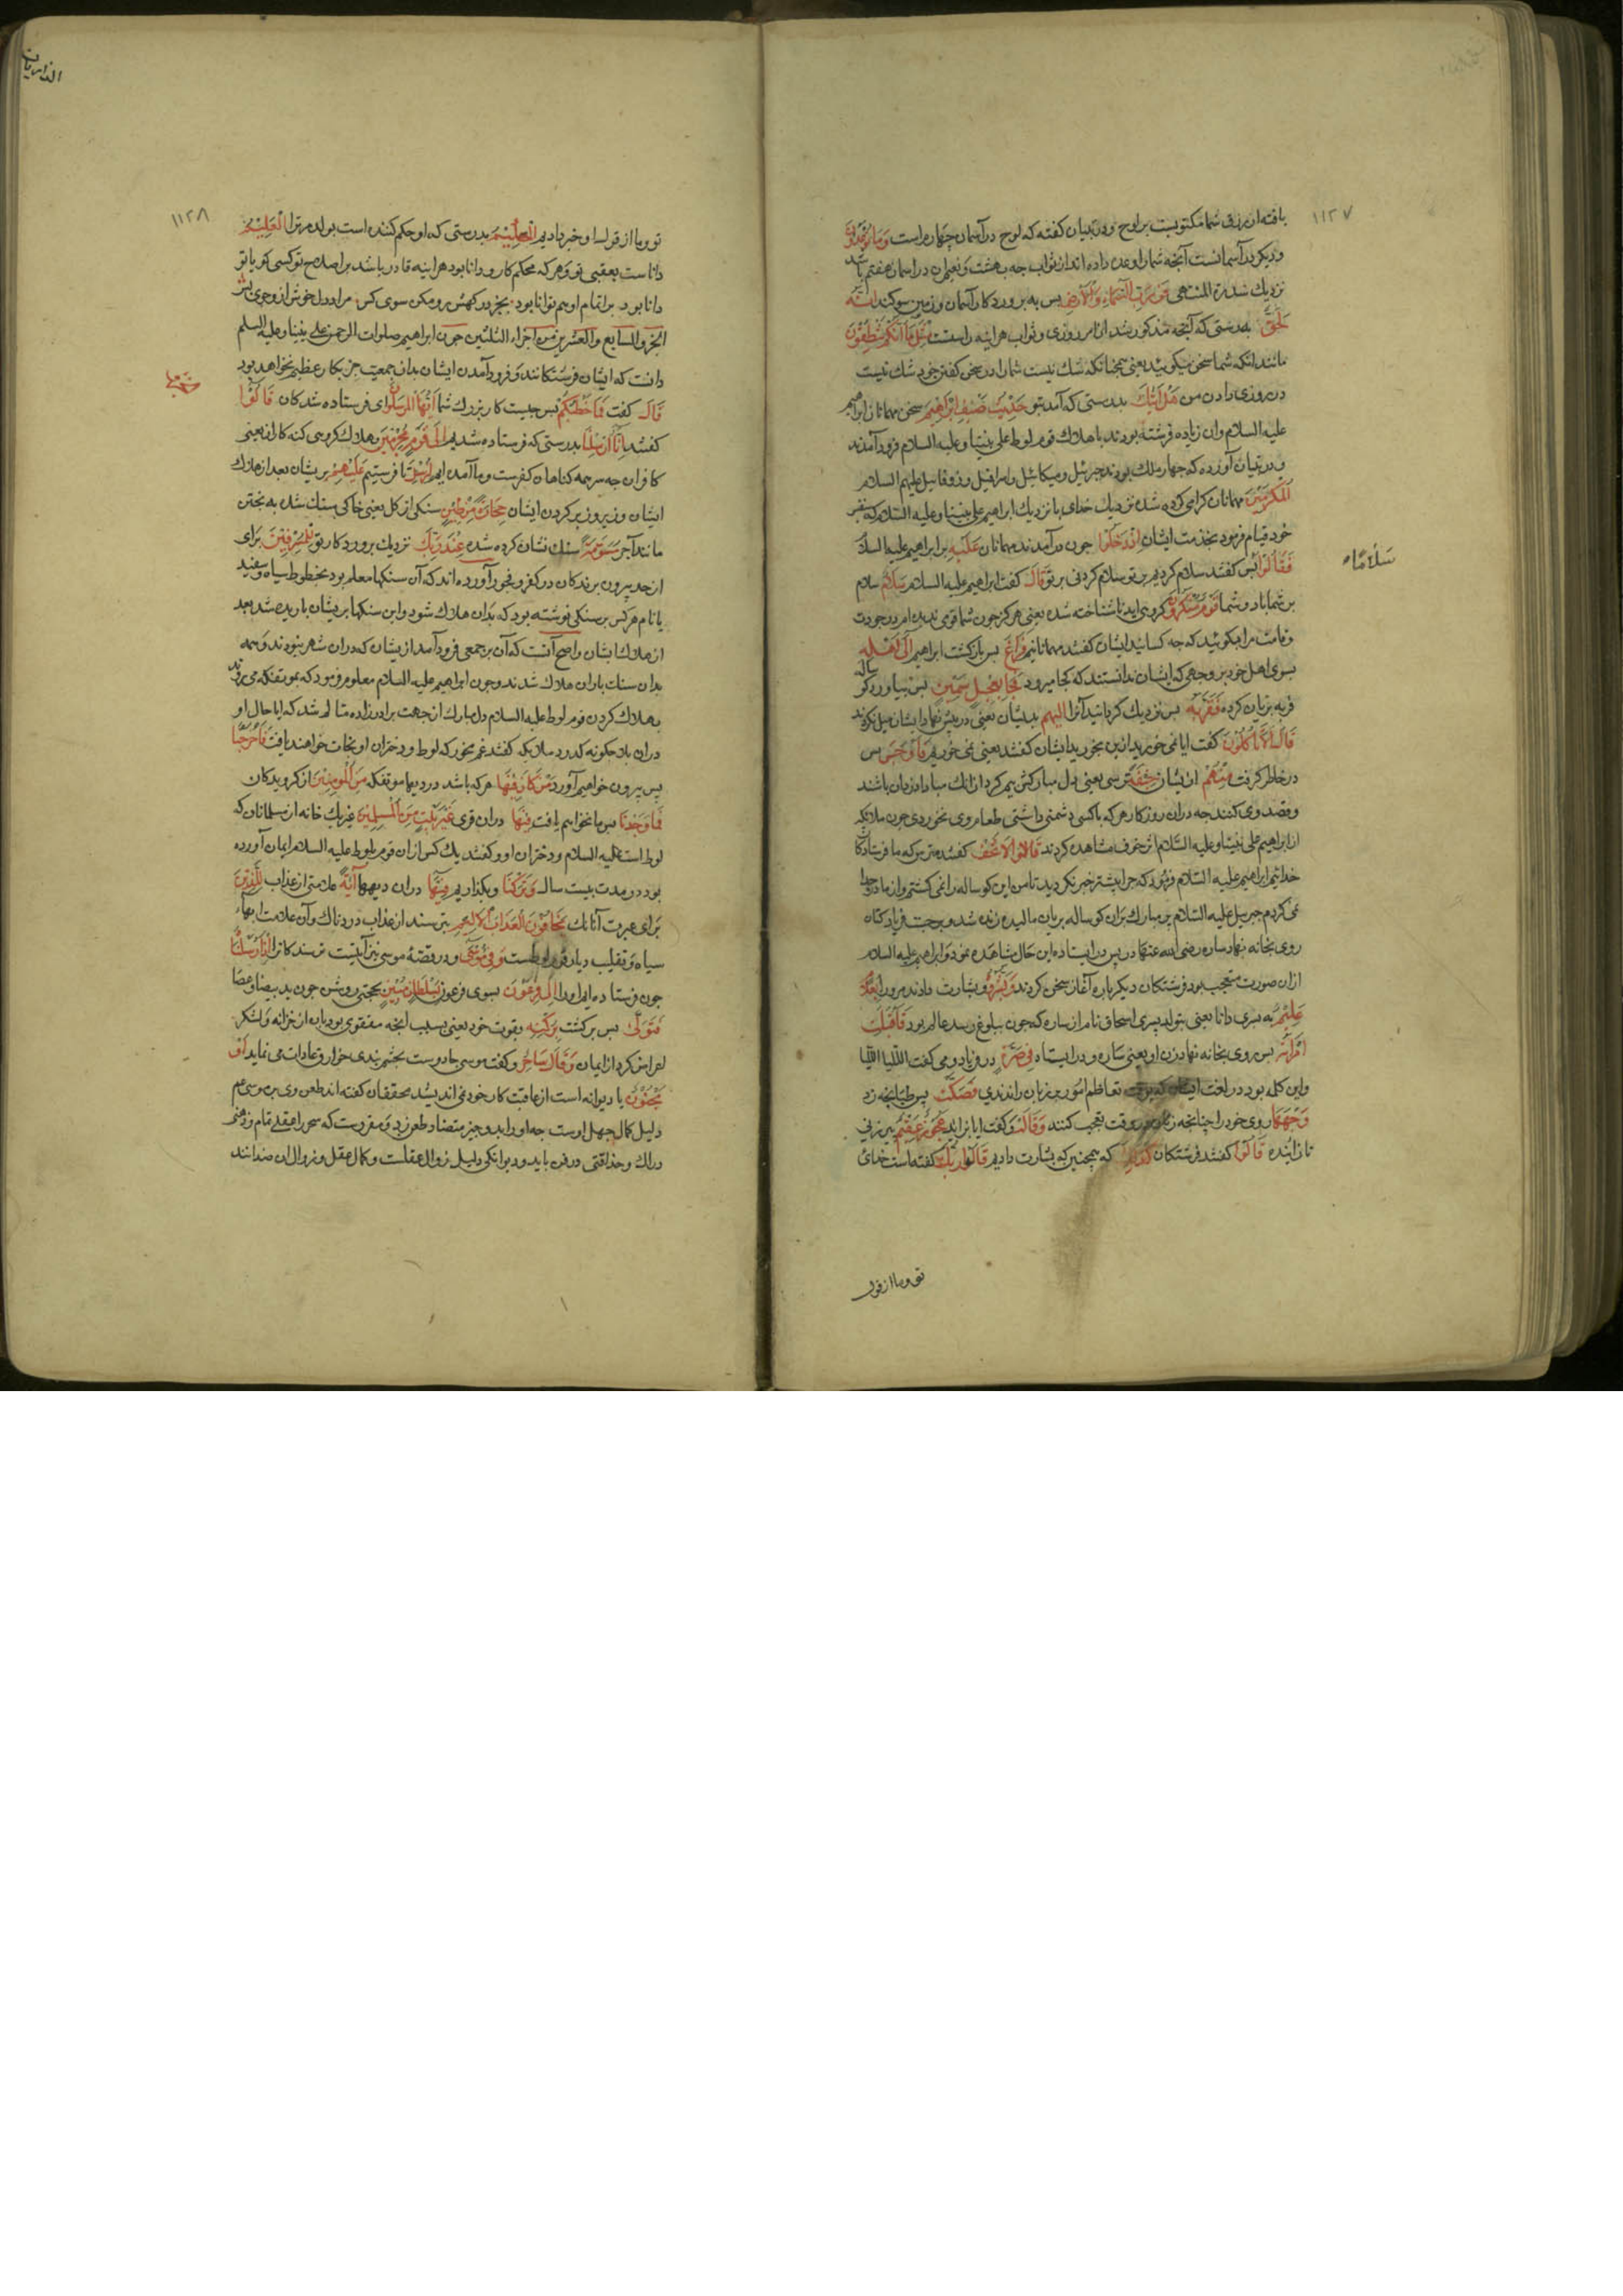 ١١٢٧
یافته اند رزق شما مکتوبست بر لوح و در تبیان گفته که لوح در آسمان چهارم است وَمَا تُوعَدُونَ
و دیگر در آسمانست آنچه شما را وعده داده اند از ثواب چه بهشت و نعیم ان در اسمان هفتم باشد
نزدیک سدرة المنتهی فَوَرَبِّ السَّمَاءِ وَالْأَرْضِ پس به پروردکار آسمان و زمین سوکند اِنَّهُ
لَحَقٌّ بدرستی که آنچه مذکور شد از امر روزی و ثواب هراینه راست مِثْلَ مَا اَنَّكُمْ تَنْطِقُونَ
مانند انکه شما سخن میکوئید یعنی همچنانکه شک نیست شما را در سخن کفتن خود شک نیست
در روزی دادن من هَلْ اَتٰيكَ بدرستی که آمد بتو حَدِيثُ ضَيْفِ اِبْرَاهِيمَ سخن مهمانان ابراهیم
علیه السلام و ان زیاده فرشته بودند باهلاک قوم لوط علی نبینا و علیه السلام فرود آمدند
و در تبیان آورده که چهار ملک بودند جبرئیل و میکائیل و اسرافیل و زوقاییل علیهم السلام
اَلْمُكْرَمِينَ مهمانان کرامی کرده شده نزدیک خدای یا نزدیک ابراهیم علی نبینا و علیه السلام که بنفس
خود قیام فرمود بخدمت ایشان اِذْ دَخَلُوا چون درآمدند مهمانان عَلَيْهِ بر ابراهیم علیه السلام
فَقَالُوا پس کفتند سلام کردیم بر تو سلام کردنی بر تو قَالَ کفت ابراهیم علیه السلام سَلَامٌ سلام
سَلَامًا
بر شما باد و شما قَوْمٌ مُنْكَرُونَ کروهی اید ناشناخته شده یعنی هرکز چون شما قومی ندیده ام در صورت
و قامت مرا بکوئید که چه کسانید ایشان کفتند مهمانانیم فَرَاغَ پس بازکشت ابراهیم اِلٰى اَهْلِهِ
بسوی اهل خود بر وجهی که ایشان ندانستند که کجا میرود فَجَاءَ بِعِجْلٍ سَمِينٍ پس بیاورد کوساله
فربه بریان کرده فَقَرَّبَهُ پس نزدیک کردانید آنرا اِلَيْهِمْ بدیشان یعنی در پیش نهاد ایشان میل نکردند
قَالَ اَلَا تَأْكُلُونَ کفت ایا نمی خورید ازین بخورید ایشان کفتند یعنی نمی خوریم فَاَوْجَسَ پس
در خاطر کرفت مِنْهُمْ از ایشان خِيفَةً ترسی یعنی بدل مبارکش بیم کرد از انک مبادا دزدان باشند
و قصد وی کنند چه دران روزکار هر که با کسی دشمنی داشتی طعام وی نخوردی چون ملائکه
از ابراهیم علی نبینا و علیه السلام اثر خوف مشاهده کردند قَالُوا لَا تَخَفْ کفتند مترس که ما فرستادکان
خدائیم ابراهیم علیه السلام فرمود که چرا پیشتر خبر نکردید تا من این کوساله را نمی کشتم و از مادر جدا
نمی کردم جبریل علیه السلام پر مبارک بران کوساله بریان مالیده زنده شد و برجست فریاد کنان
روی بخانه نهاد ساره رضی الله عنها در پس در ایستاده این حال مشاهده نمود و ابراهیم علیه السلام
ازان صورت متعجب بود فرشتکان دیکرباره آغاز سخن کردند وَبَشَّرُوهُ و بشارت دادند مر او را بِغُلَامٍ
عَلِيمٍ به پسری دانا یعنی بتولد پسری اسحاق نام از ساره که چون ببلوغ رسد عالم بود فَاَقْبَلَتِ
امْرَاَتُهُ پس روی بخانه نهاد زن او یعنی ساره و در ایستاد فِي صَرَّةٍ در فریاد و می کفت اللیلیا اللیلیا
و این کلمه بود در لغت ایشان که بوقت تعاظم امور بر زبان راندندی فَصَكَّتْ پس طپانچه زد
وَجْهَهَا روی خود را چنانچه زنان در وقت تعجب کنند وَقَالَتْ و کفت ایا بزاید عَجُوزٌ عَقِيمٌ پیرزنی
نازاینده قَالُوا کفتند فرشتکان كَذٰلِكِ که همچنین که بشارت دادیم قَالَ رَبُّكِ کفته است خدای
تو و ما از قول
الذاریات
١١٢٨
تو و ما از قول او خبر دادیم اِنَّهُ هُوَ الْحَكِيمُ بدرستی که او حکم کننده است بولد مر ترا الْعَلِيمُ
داناست بعقبی تو و هر که محکم کار و دانا بود هراینه قادر باشد بر اصلاح تو کسی کو با تو
دانا بود بر اتمام او هم توانا بود بجز درکهش رو مکن سوی کس مراد دل خویش ازو جوی و بس
الجزو السابع والعشرین من اجزاء الثلثین چون ابراهیم صلوات الرحمن علی نبینا و علیه السلم
دانست که ایشان فرشتکانند و فرود آمدن ایشان بدان جمعیت جز بکار عظیم نخواهد بود
قَالَ کفت فَمَا خَطْبُكُمْ پس چیست کار بزرک شما اَيُّهَا الْمُرْسَلُونَ ای فرستاده شدکان قَالُوا
کفتند اِنَّا اُرْسِلْنَا بدرستی که فرستاده شدیم اِلٰى قَوْمٍ مُجْرِمِينَ بهلاک کروهی کنه کاران یعنی
کافران چه سرهمه کناهان کفرست و ما آمده ایم لِنُرْسِلَ تا فرستیم عَلَيْهِمْ بریشان بعد از هلاک
ایشان و زیر و زبر کردن ایشان حِجَارَةً مِنْ طِينٍ سنکی از کل یعنی خاکی سنک شده به پختن
مانند آجر مُسَوَّمَةً سنک نشان کرده شده عِنْدَ رَبِّكَ نزدیک پروردکار تو لِلْمُسْرِفِينَ برای
از حد بیرون برندکان در کفر و فجور آورده اند که آن سنکها معلم بود بخطوط سیاه و سفید
یا نام هر کس بر سنکی نوشته بود که بدان هلاک شود و این سنکها بریشان باریده شد بعد
از هلاک ایشان و اصح آنست که آن بر جمعی فرود آمد از یشان که دران شهر نبودند و همه
بدان سنک باران هلاک شدند و چون ابراهیم علیه السلام معلوم فرمود که بموتفکه می روند
بهلاک کردن قوم لوط علیه السلام دل مبارک از جهت برادرزاده متالم شد که ایا حال او
دران بلا چکونه کذرد ملایکه کفتند غم مخور که لوط و دختران او نجات خواهند یافت فَاَخْرَجْنَا
پس بیرون خواهیم آورد مَنْ كَانَ فِيهَا هر که باشد در دیهها موتفکه مِنَ الْمُؤْمِنِينَ از کرویدکان
فَمَا وَجَدْنَا پس ما نخواهیم یافت فِيهَا دران قری غَيْرَ بَيْتٍ مِنَ الْمُسْلِمِينَ غیر یک خانه از مسلمانان که
لوط است علیه السلام و دختران او و کفتند یک کس ازان قوم بلوط علیه السلام ایمان آورده
بود در مدت بیست سال وَتَرَكْنَا و بکذاریم فِيهَا دران دیهها آيَةً علامتی از عذاب لِلَّذِينَ
برای عبرت آنانک يَخَافُونَ الْعَذَابَ الْاَلِيمَ بترسند از عذاب دردناک و آن علامت ابهاء
سیاه و تقلیب دیار قوم لوطست وَفِي مُوسٰى و در قصهٔ موسی نیز آیتیست ترسندکانرا اِذْ اَرْسَلْنَاهُ
چون فرستاده ایم او را اِلٰى فِرْعَوْنَ بسوی فرعون بِسُلْطَانٍ مُبِينٍ بحجتی روشن چون ید بیضا و عصا
فَتَوَلّٰى پس برکشت بِرُكْنِهِ بقوت خود یعنی بسبب آنچه متقوی بود بان از خزانه و لشکر
اعراض کرد از ایمان وَقَالَ سَاحِرٌ و کفت موسی جادوست بچشم بندی خوارق عادات می نماید اَوْ
مَجْنُونٌ یا دیوانه است از عاقبت کار خود نمی اندیشد محققان کفته اند طعن وی بر موسی ع م
دلیل کمال جهل اوست چه او را بدو چیز متضاد طعن زد و مقررست که سحر را عقلی تمام و ذهنی
دراک و حذاقتی در فن باید و دیوانکی دلیل زوال عقلست و کمال عقل و زوال ان ضدانند